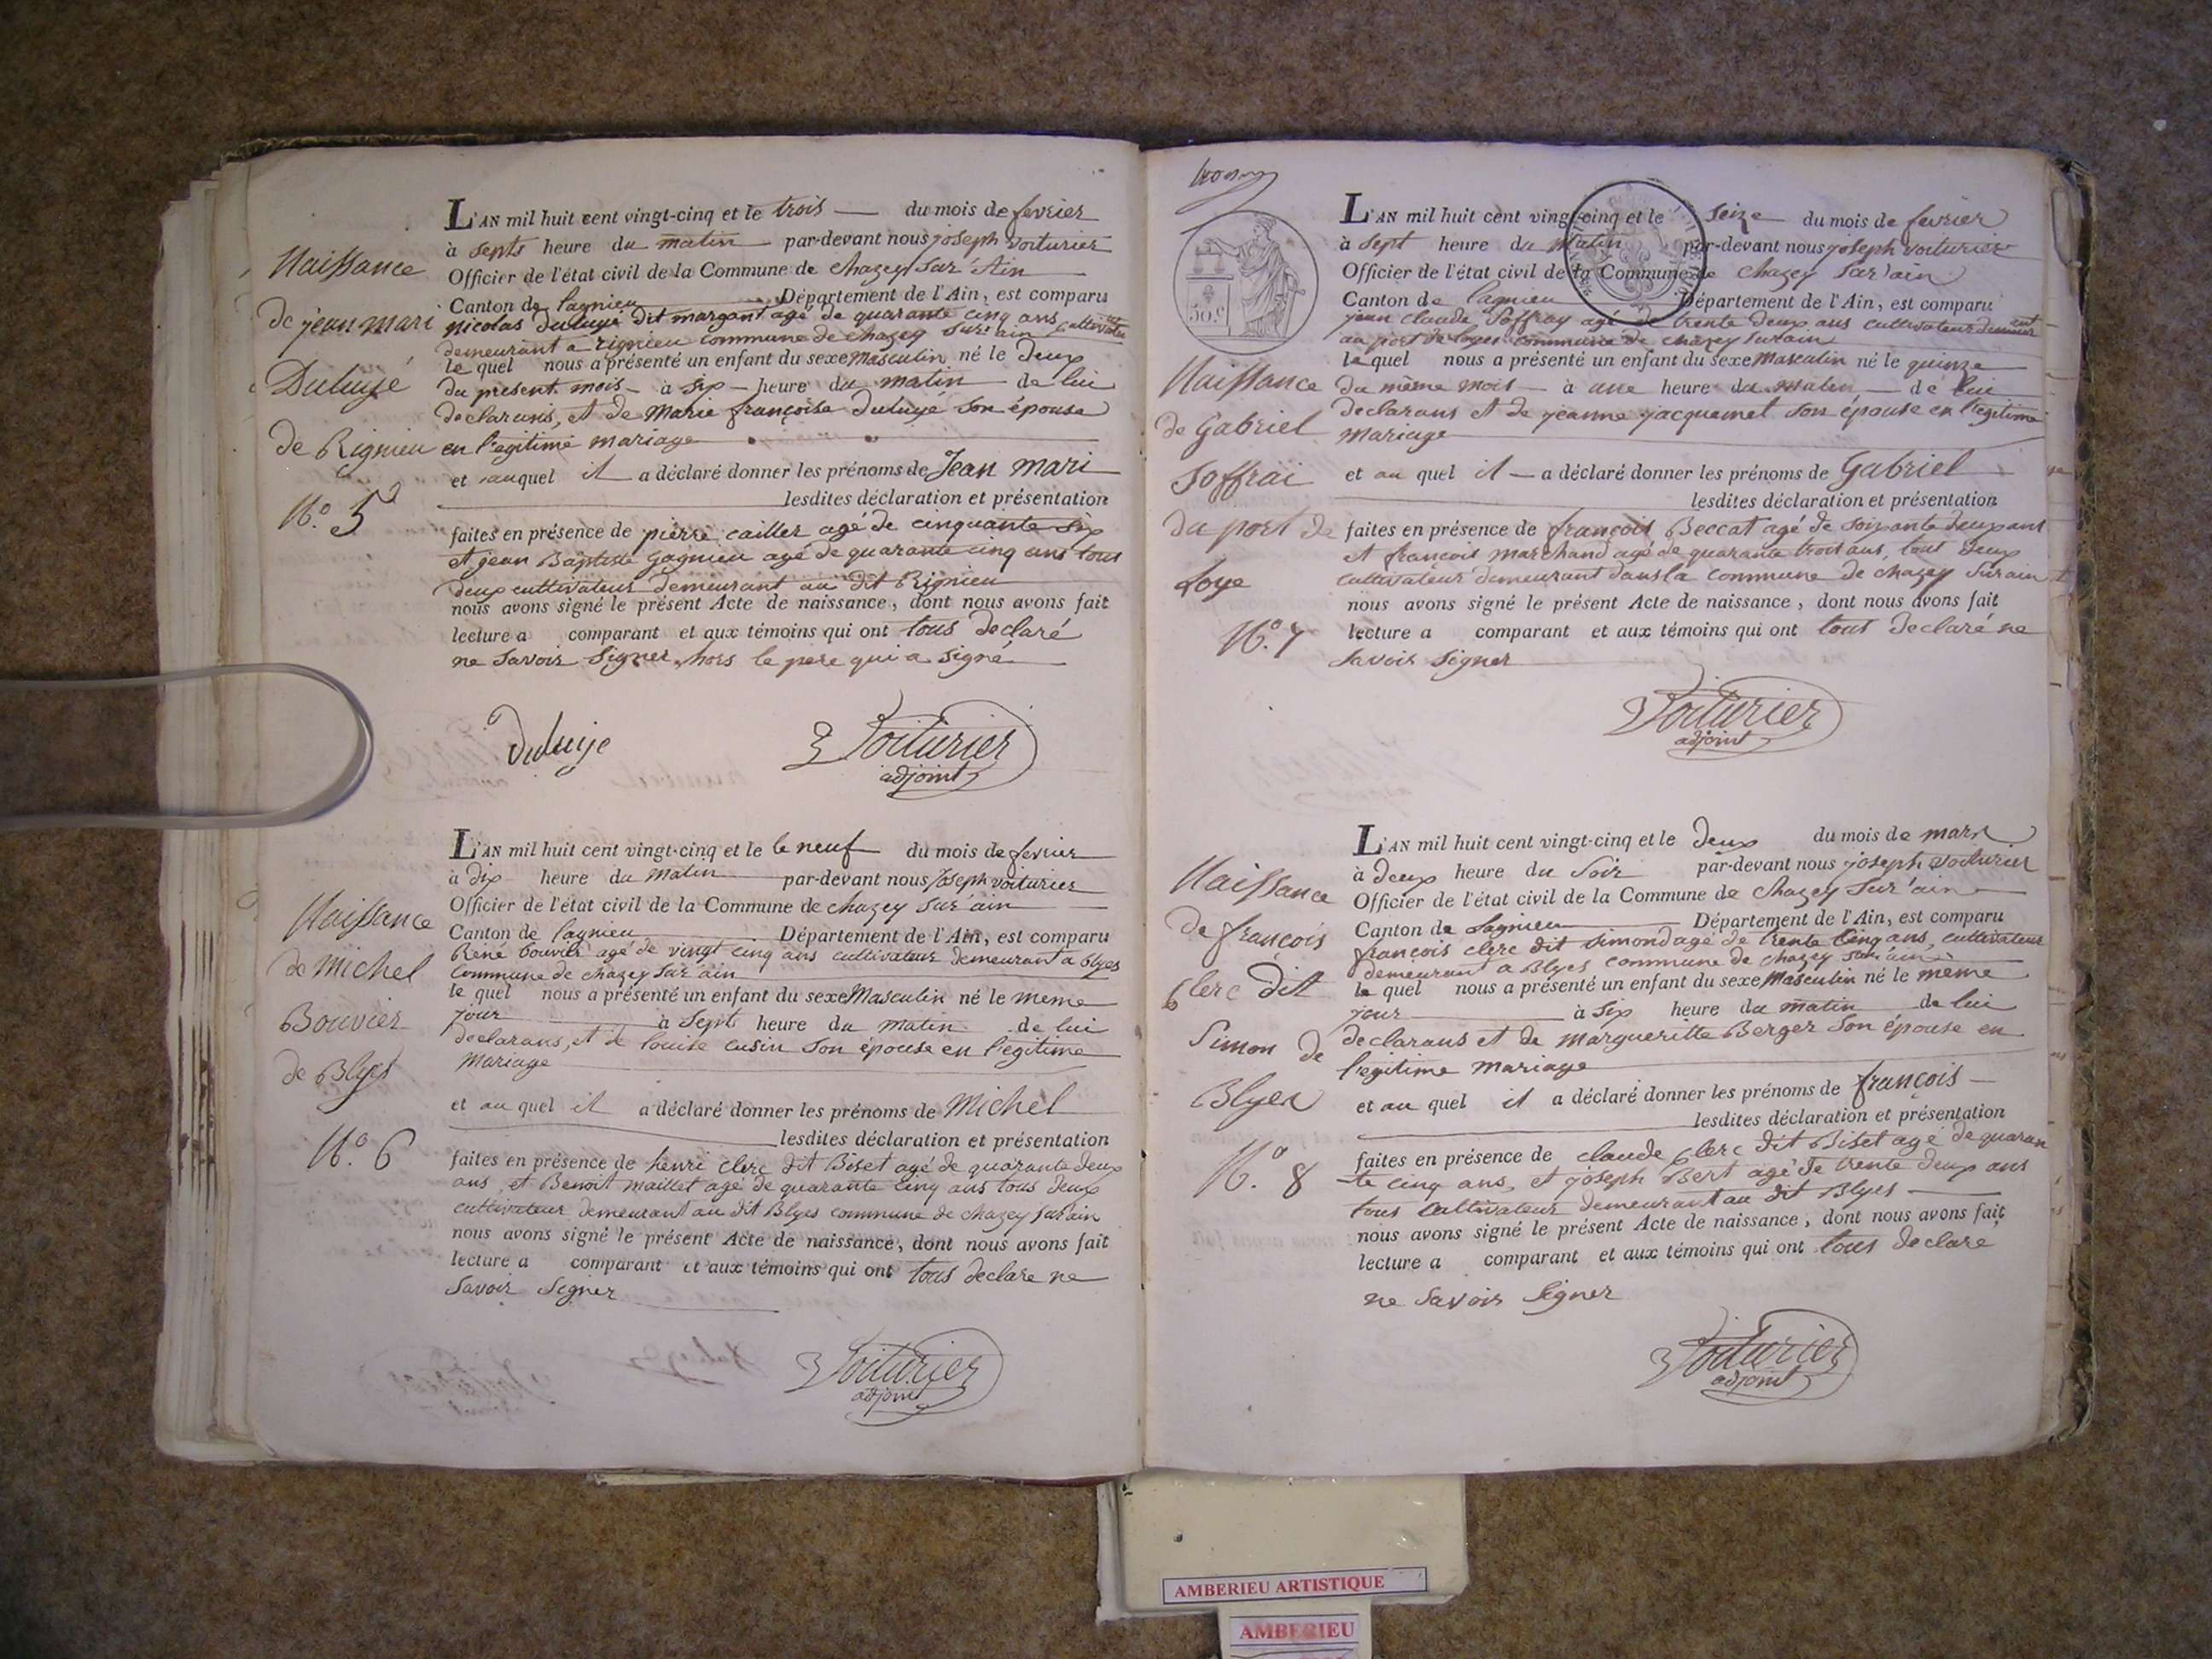 Naissance
de jean mari
Duluyé
de Rignieu
N.º 5
L'AN mil huit cent vingt-cinq et le trois du mois de fevrier
à septs heure du matin par-devant nous joseph voiturier
Officier de l'état civil de la Commune de chazey sur'Ain
Canton de lagnieu Département de l'Ain, est comparu
nicolas duluyé dit margant agé de quarante cinq ans cultivateur
demeurant a rignieu commune de chazey sur ain
le quel nous a présenté un enfant du sexe masculin né le deux
du present mois à six heure du matin de lui
declarans, et de marie françoise duluyé son épouse
en l'egitime mariage
et auquel il a déclaré donner les prénoms de Jean mari
lesdites déclaration et présentation
faites en présence de pierre cailler agé de cinquante six
et jean Baptiste Gagnieu agé de quarante cinq ans tous
deux cultivateur demeurant au dit Rignieu
nous avons signé le présent Acte de naissance, dont nous avons fait
lecture a comparant et aux témoins qui ont tous declaré
ne savoir signer, hors le pere qui a signé
Duluye
Voiturier
adjoint
Naissance
de michel
Bouvier
de Blyes
N.º 6
L'AN mil huit cent vingt-cinq et le le neuf du mois de fevrier
à dix heure du matin par-devant nous joseph voiturier
Officier de l'état civil de la Commune de chazey sur'ain
Canton de lagnieu Département de l'Ain, est comparu
René bouvier agé de vingt cinq ans cultivateur demeurant a blyes
commune de chazey sur ain
le quel nous a présenté un enfant du sexe masculin né le meme
jour à sept heure du matin de lui
declarans, et de louise cusin son épouse en l'egitime
mariage
et au quel il a déclaré donner les prénoms de michel
lesdites déclaration et présentation
faites en présence de henri clerc dit Biset agé de quarante deux
ans, et Benoit maillet agé de quarante cinq ans tous deux
cultivateur demeurant au dit Blyes commune de chazey sur ain
nous avons signé le présent Acte de naissance, dont nous avons fait
lecture a comparant et aux témoins qui ont tous declare ne
savoir signer
Voiturier
adjoint
50 c.
Naissance
de Gabriel
Soffrai
du port de
Loye
N.º 7
L'AN mil huit cent vingt-cinq et le seize du mois de fevrier
à sept heure du matin par-devant nous joseph voiturier
Officier de l'état civil de la Commune de chazey sur'ain
Canton de lagnieu Département de l'Ain, est comparu
jean claude Soffray agé de trente deux ans cultivateur demeurant
au port de loyes commune de chazey sur ain
le quel nous a présenté un enfant du sexe masculin né le quinze
du même mois à une heure du matin de lui
declarans et de jeanne jacquemet son épouse en l'egitime
mariage
et au quel il a déclaré donner les prénoms de Gabriel
lesdites déclaration et présentation
faites en présence de françois Beccat agé de soixante deux ans
et françois marchand agé de quarante trois ans, tous deux
cultivateur demeurant dans la commune de chazey sur ain
nous avons signé le présent Acte de naissance, dont nous avons fait
lecture a comparant et aux témoins qui ont tous declaré ne
savoir signer
Voiturier
adjoint
Naissance
de françois
clerc dit
Simon de
Blyes
N.º 8
L'AN mil huit cent vingt-cinq et le deux du mois de mars
à deux heure du soir par-devant nous joseph voiturier
Officier de l'état civil de la Commune de chazey sur'ain
Canton de lagnieu Département de l'Ain, est comparu
françois clerc dit simond agé de trente cinq ans, cultivateur
demeurant a Blyes commune de chazey sur ain
le quel nous a présenté un enfant du sexe masculin né le même
jour à six heure du matin de lui
declarans et de margueritte Berger son épouse en
l'egitime mariage
et au quel il a déclaré donner les prénoms de françois
lesdites déclaration et présentation
faites en présence de claude clerc dit Biset agé de quaran
te cinq ans, et joseph Bert agé de trente deux ans
tous cultivateur demeurant au dit Blyes
nous avons signé le présent Acte de naissance, dont nous avons fait
lecture a comparant et aux témoins qui ont tous declaré
ne savoir signer
Voiturier
adjoint
AMBERIEU ARTISTIQUE
AMBERIEU